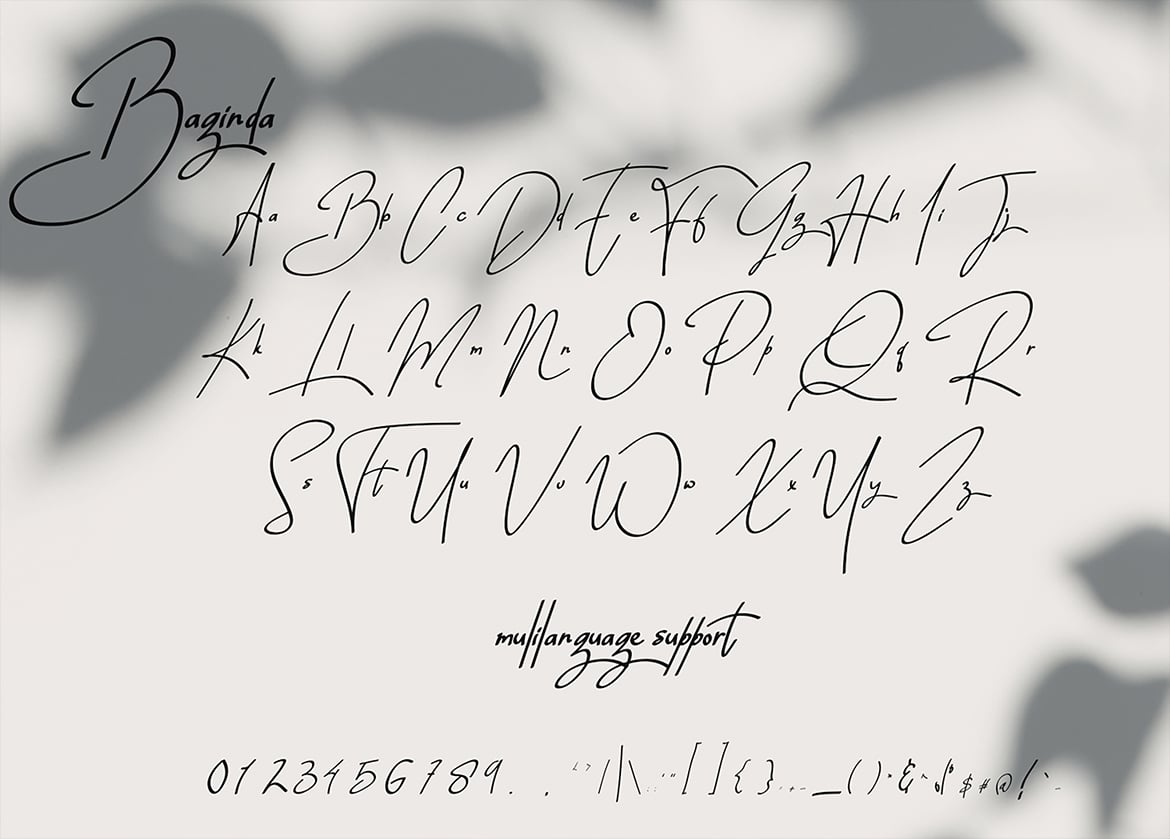 Baginda
Aa Bb Cc Dd Ee Ff Gg Hh Ii Jj
Kk Ll Mm Nn Oo Pp Qq Rr
Ss Tt Uu Vv Ww Xx Yy Zz
mulilanguage support
0123456789